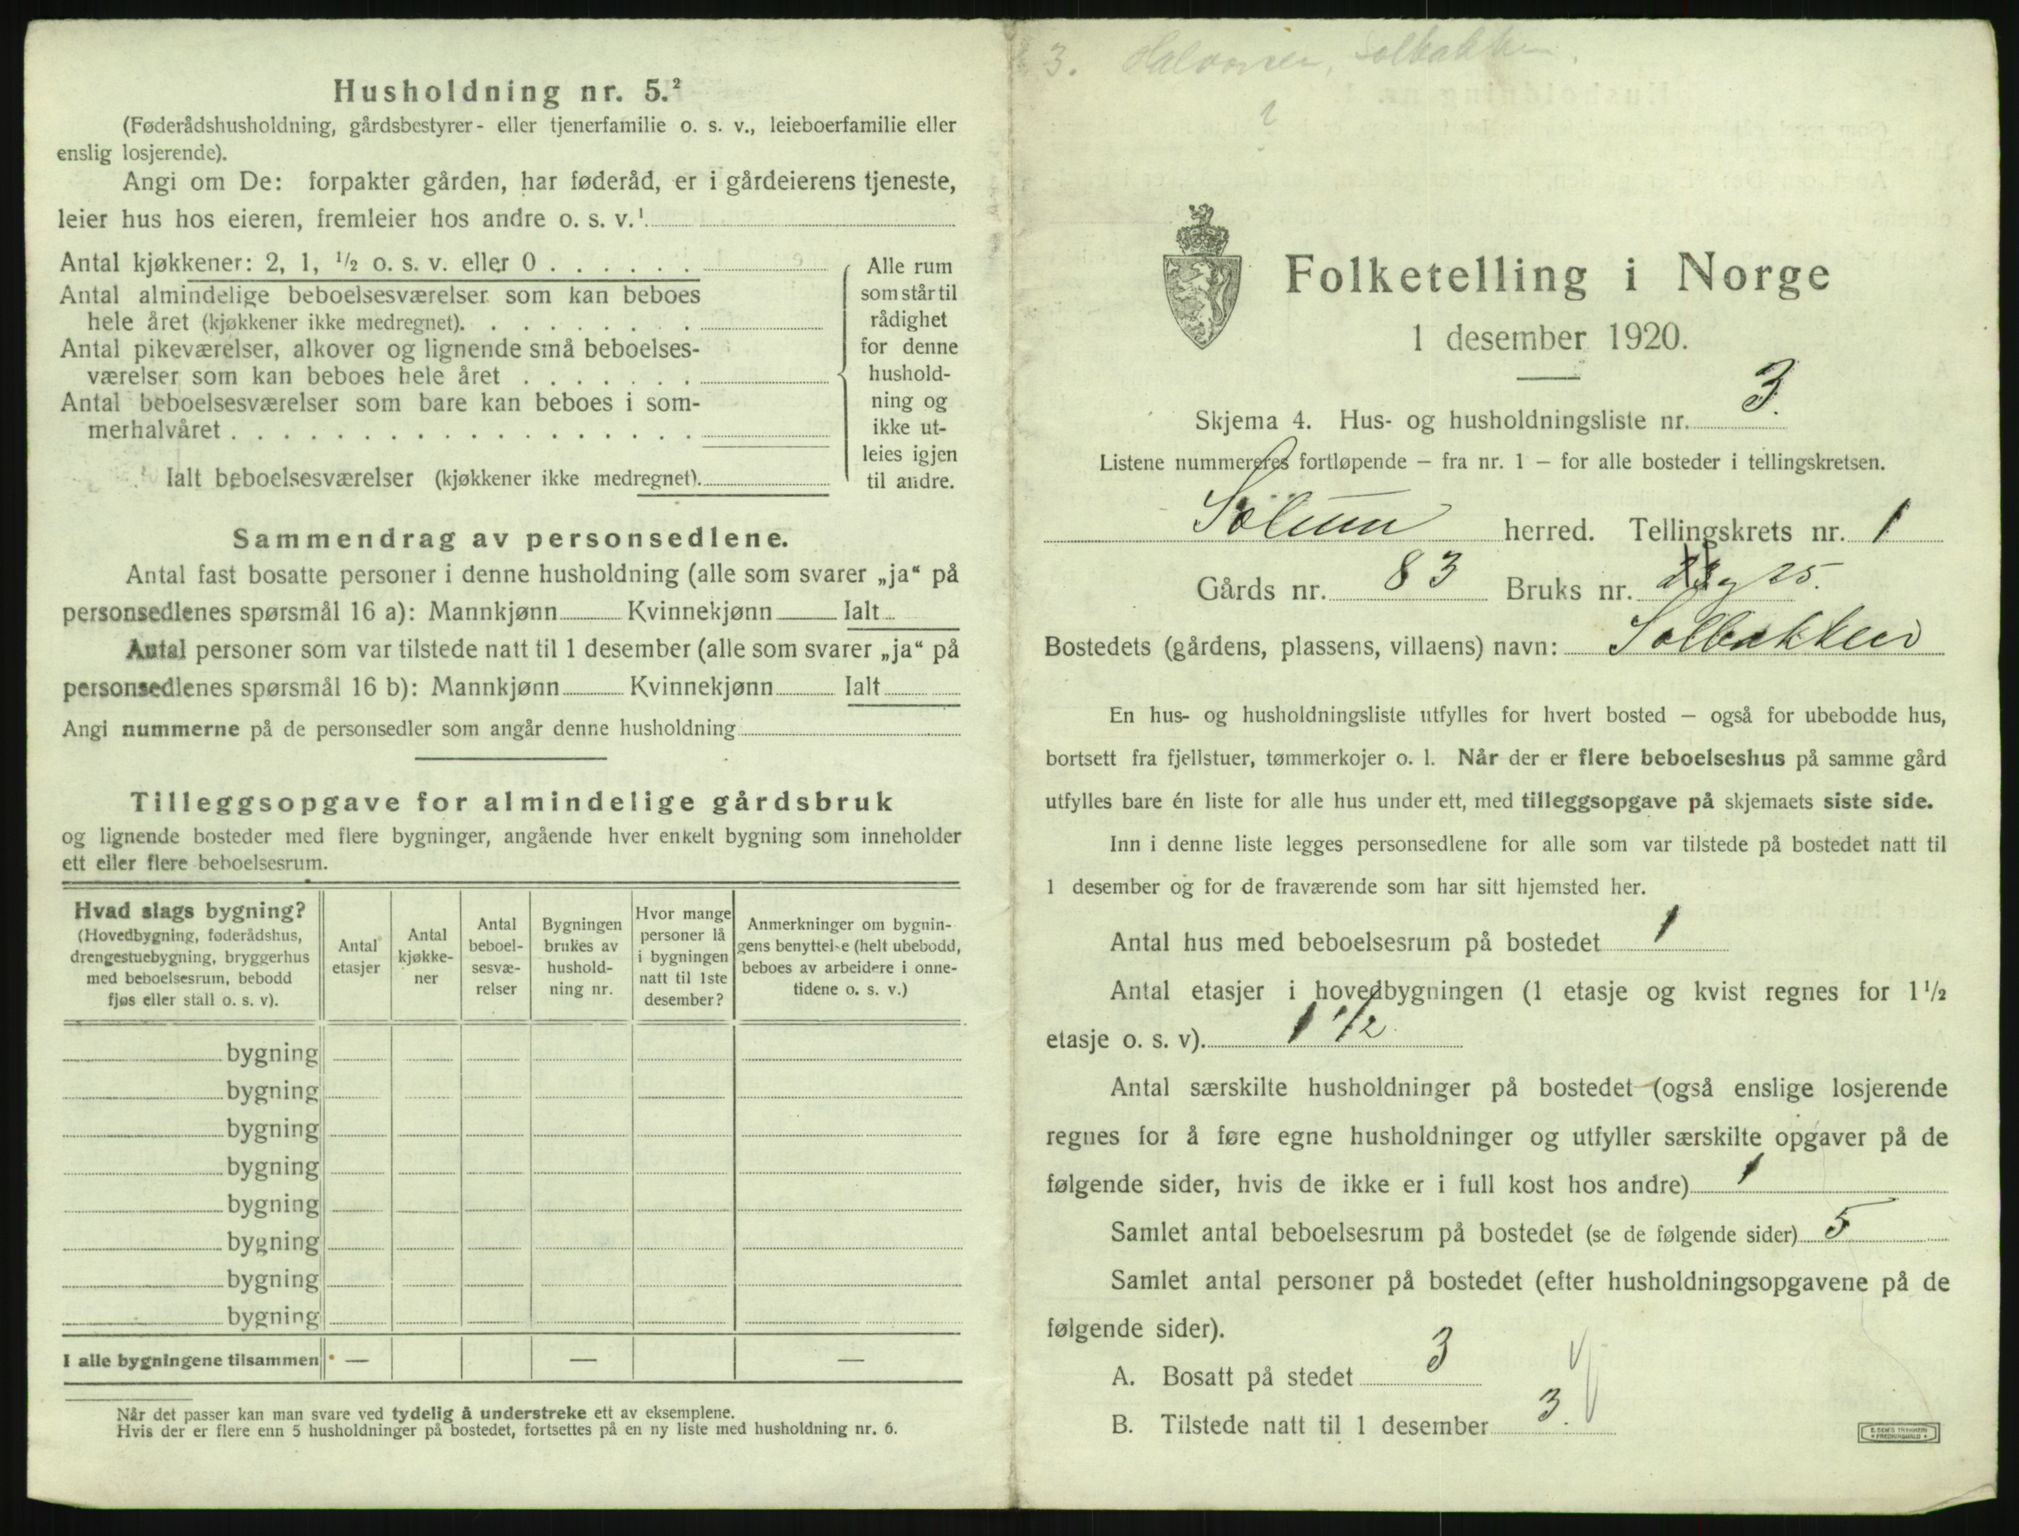 Husholdning nr. 5.²
(Føderådshusholdning, gårdsbestyrer- eller tjenerfamilie o. s. v., leieboerfamilie eller
enslig losjerende).
Angi om De: forpakter gården, har føderåd, er i gårdeierens tjeneste,
leier hus hos eieren, fremleier hos andre o. s. v.¹
Antal kjøkkener: 2, 1, ½ o. s. v. eller 0 . . . . . .
Antal almindelige beboelsesværelser som kan beboes
hele året (kjøkkener ikke medregnet). . . . . . . . .
Antal pikeværelser, alkover og lignende små beboelses-
værelser som kan beboes hele året . . . . . . .
Antal beboelsesværelser som bare kan beboes i som-
merhalvåret . . . . . . . . . . . . . . . . .
Ialt beboelsesværelser (kjøkkener ikke medregnet).
Alle rum
som står til
rådighet
for denne
hushold-
ning og
ikke ut-
leies igjen
til andre.
Sammendrag av personsedlene.
Antal fast bosatte personer i denne husholdning (alle som svarer „ja“ på
personsedlenes spørsmål 16 a): Mannkjønn Kvinnekjønn Ialt
Antal personer som var tilstede natt til 1 desember (alle som svarer „ja“ på
personsedlenes spørsmål 16 b): Mannkjønn Kvinnekjønn Ialt
Angi nummerne på de personsedler som angår denne husholdning
Tilleggsopgave for almindelige gårdsbruk
og lignende bosteder med flere bygninger, angående hver enkelt bygning som inneholder
ett eller flere beboelsesrum.
Hvad slags bygning?
(Hovedbygning, føderådshus,
drengestuebygning, bryggerhus
med beboelsesrum, bebodd
fjøs eller stall o. s. v).
Antal
etasjer
Antal
kjøkke-
ner
Antal
beboel-
sesvæ-
relser
Bygningen
brukes av
hushold-
ning nr.
Hvor mange
personer lå
i bygningen
natt til 1ste
desember?
Anmerkninger om bygnin-
gens benyttelse (helt ubebodd,
beboes av arbeidere i onne-
tidene o. s. v.)
bygning
bygning
bygning
bygning
bygning
bygning
bygning
bygning
I alle bygningene tilsammen — — —
Når det passer kan man svare ved tydelig å understreke ett av eksemplene.
Hvis der er flere enn 5 husholdninger på bostedet, fortsettes på en ny liste med husholdning nr. 6.
3. Halvorsen, Solbakken.
Folketelling i Norge
1 desember 1920.
Skjema 4. Hus- og husholdningsliste nr. 3.
Listene nummereres fortløpende – fra nr. 1 – for alle bosteder i tellingskretsen.
Solum herred. Tellingskrets nr. 1
Gårds nr. 83 Bruks nr. 25.
Bostedets (gårdens, plassens, villaens) navn: Solbakken
En hus- og husholdningsliste utfylles for hvert bosted – også for ubebodde hus,
bortsett fra fjellstuer, tømmerkojer o. l. Når der er flere beboelseshus på samme gård
utfylles bare én liste for alle hus under ett, med tilleggsopgave på skjemaets siste side.
Inn i denne liste legges personsedlene for alle som var tilstede på bostedet natt til
1 desember og for de fraværende som har sitt hjemsted her.
Antal hus med beboelsesrum på bostedet 1
Antal etasjer i hovedbygningen (1 etasje og kvist regnes for 1½
etasje o. s. v). 1 1/2
Antal særskilte husholdninger på bostedet (også enslige losjerende
regnes for å føre egne husholdninger og utfyller særskilte opgaver på de
følgende sider, hvis de ikke er i full kost hos andre) 1
Samlet antal beboelsesrum på bostedet (se de følgende sider) 5
Samlet antal personer på bostedet (efter husholdningsopgavene på de
følgende sider).
A. Bosatt på stedet 3
B. Tilstede natt til 1 desember 3.